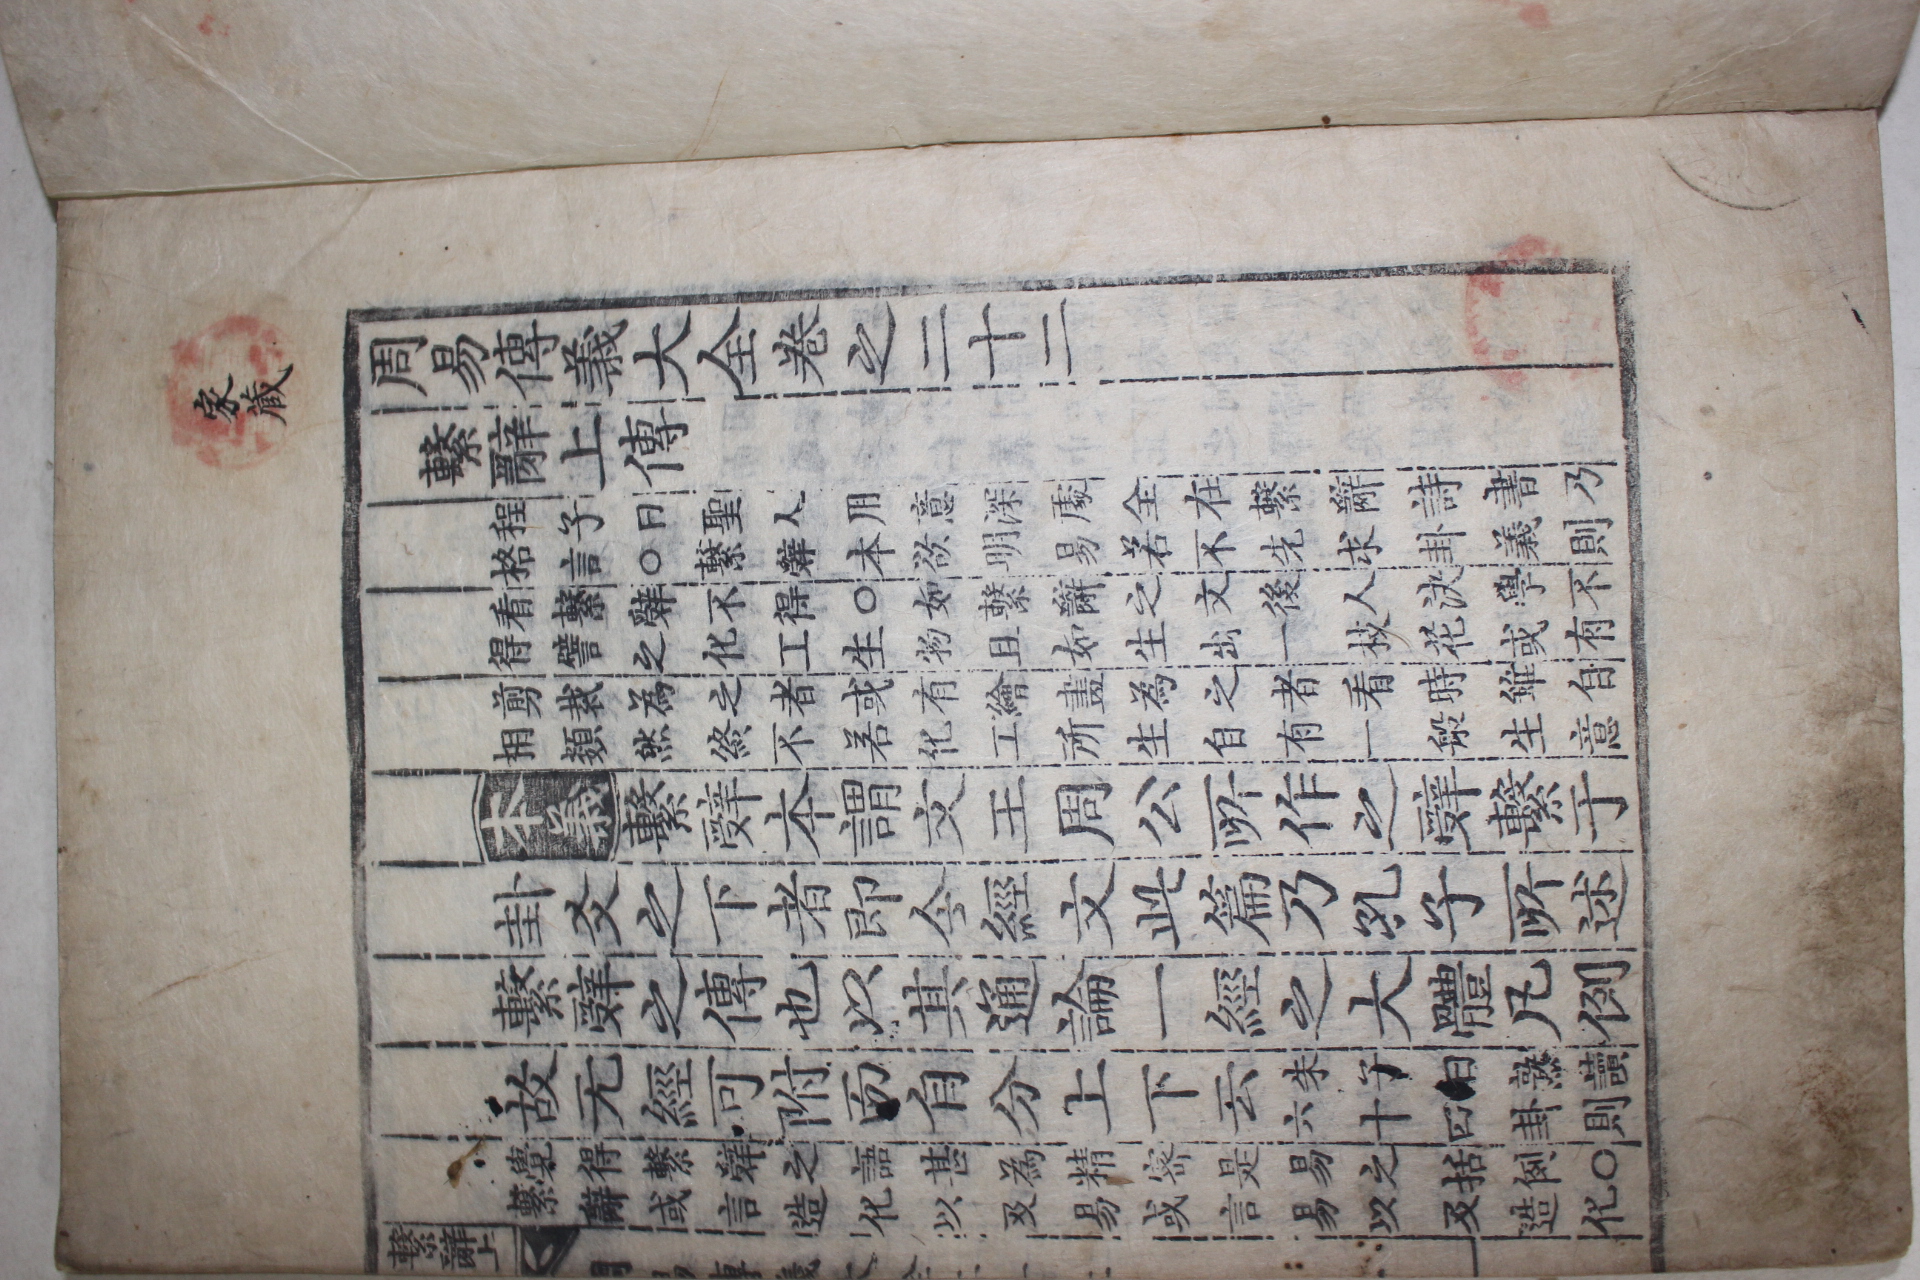 家藏
周易傳義大全卷之二十二
繫辭上傳
程子曰聖人用意深處全在繫辭詩書乃
格言○繫辭本欲明易若不先求卦義則
看繫辭不得○如繫辭之文後人決學不
得譬之化工生物且如生出一枝花或有
剪裁為之者或有繪畫為之者看時雖自
相類然終不若化工所生自有一般生意
本義繫辭本謂文王周公所作之辭繫于
卦爻之下者即今經文此篇乃孔子所述
繫辭之傳也以其通論一經之大體凡例
故无經可附而自分上下云
朱子曰熟讀
六十四卦則
覺得繫辭之語甚為精密是易之括例○
繫辭或言造化以及易或言易以及造化
繫辭上